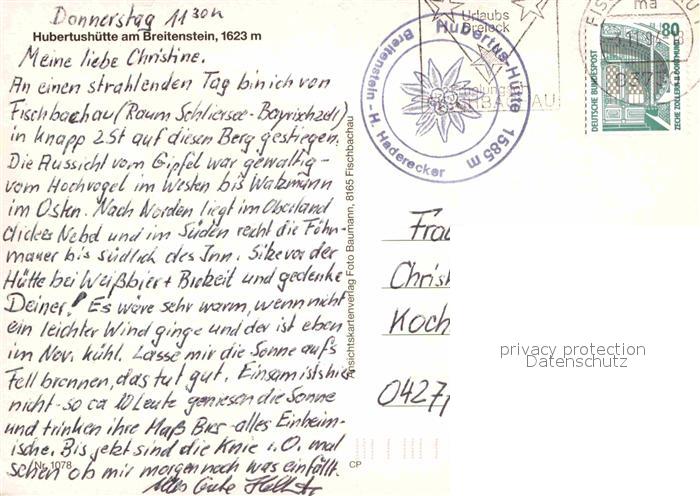 Donnerstag 11 30h
Hubertushütte am Breitenstein, 1623 m
Meine liebe Christine.
An einen strahlenden Tag bin ich von
Fischbachau (Raum Schliersee-Bayrischzell)
in knapp 2 St auf diesen Berg gestiegen.
Die Aussicht vom Gipfel war gewaltig -
vom Hochvogel im Westen bis Watzmann
im Osten. Nach Norden liegt im Oberland
dickes Nebel und im Süden reicht die Föhn-
mauer bis südlich des Inn. Sitze vor der
Hütte bei Weißbier + Brotzeit und gedenke
Deiner! Es wäre sehr warm, wenn nicht
ein leichter Wind ginge und der ist eben
im Nov. kühl. Lasse mir die Sonne aufs
Fell brennen, das tut gut. Einsam ists hier
nicht - so ca 10 Leute geniesen die Sonne
und trinken ihre Maß Bier - alles Einheim-
ische. Bis jetzt sind die Knie i.O. mal
schen ob mir morgen noch was einfällt.
Alles Gute
Nr. 1078
CP
Ansichtskartenverlag Foto Baumann, 8165 Fischbachau
Hubertus-Hütte 1585 m
Breitenstein - H. Haderecker
Urlaubs
Dreieck
DEUTSCHE BUNDESPOST
80
ZECHE ZOLLERN II DORTMUND
Frau
Christ
Koch
0427
privacy protection
Datenschutz